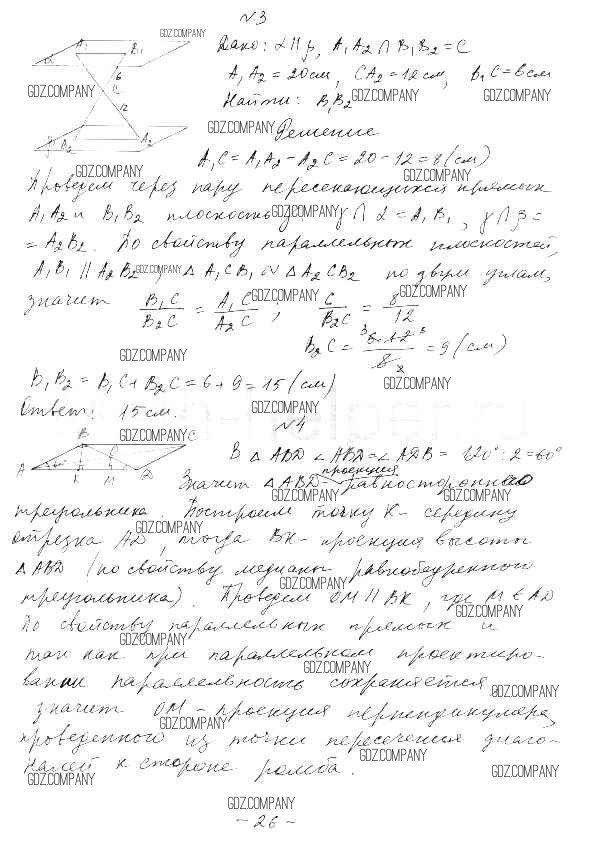 №3
Дано: α ∥ β, A₁A₂ ∩ B₁B₂ = C
A₁A₂ = 20 см, CA₂ = 12 см, B₁C = 6 см
Найти: B₁B₂
Решение
A₁C = A₁A₂ - A₂C = 20 - 12 = 8 (см)
Проведем через пару пересекающихся прямых
A₁A₂ и B₁B₂ плоскость γ γ ∩ α = A₁B₁, γ ∩ β =
= A₂B₂. По свойству параллельных плоскостей,
A₁B₁ ∥ A₂B₂, △A₁CB₁ ∾ △A₂CB₂ по двум углам,
значит B₁C/B₂C = A₁C/A₂C; 6/B₂C = 8/12
B₂C = 6·12/8 = 9 (см)
B₁B₂ = B₁C + B₂C = 6 + 9 = 15 (см)
Ответ: 15 см.
№4
В △ABD ∠ABD = ∠ADB = 120°:2 = 60°
проекция
Значит △ABD - равностороннего
треугольника. Построим точку K - середину
отрезка AD, тогда BK - проекция высоты
△ABD (по свойству медианы равнобедренного
треугольника). Проведем OM ∥ BK, где M ∈ AD
По свойству параллельных прямых и
так как при параллельном проектиро-
вании параллельность сохраняется,
значит OM - проекция перпендикуляра,
проведенного из точки пересечения диаго-
налей к стороне ромба.
GDZ.COMPANY
- 26 -